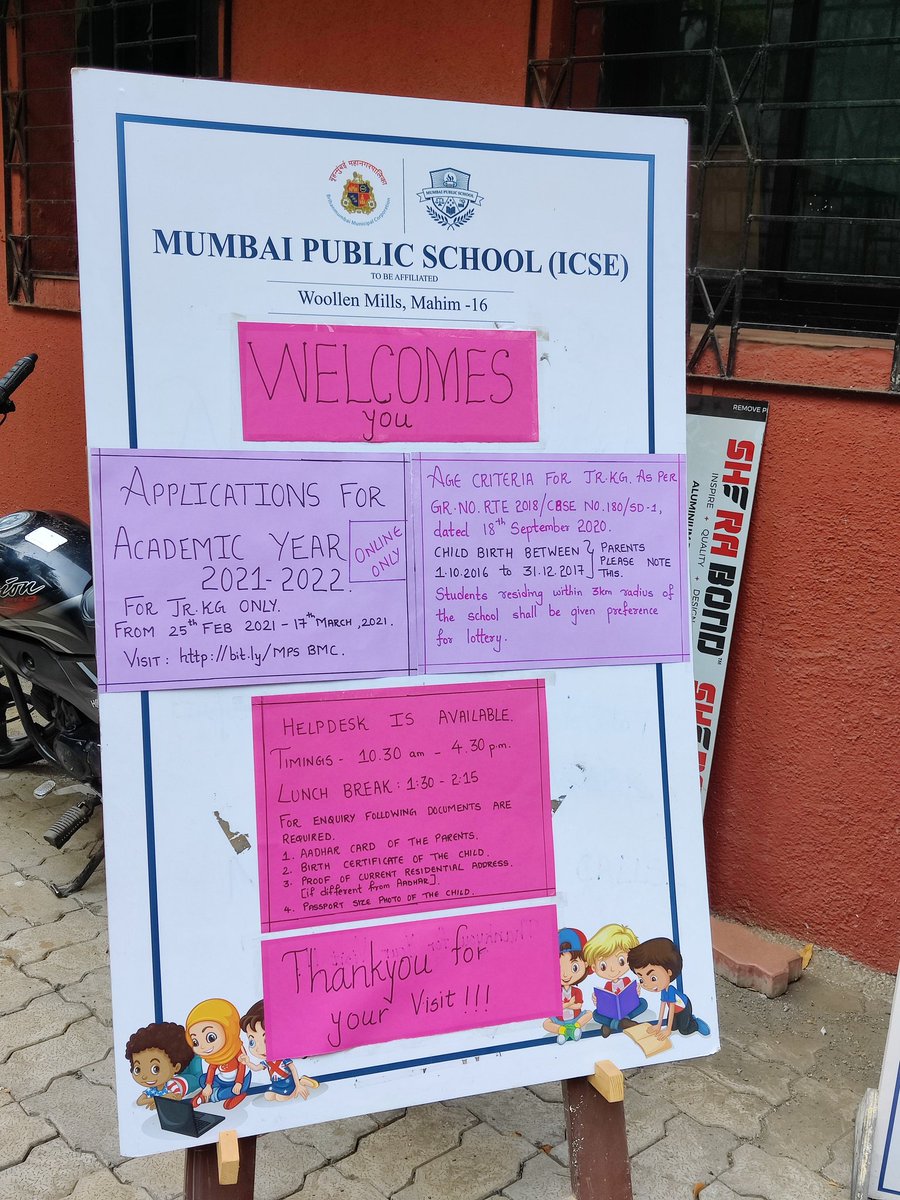 बृहन्मुंबई महानगरपालिका
Brihanmumbai Municipal Corporation
MUMBAI PUBLIC SCHOOL
MUMBAI PUBLIC SCHOOL (ICSE)
TO BE AFFILIATED
Woollen Mills, Mahim -16
WELCOMES
you
APPLICATIONS FOR
ACADEMIC YEAR
2021-2022.
ONLINE
ONLY
FOR JR.KG ONLY.
FROM 25th FEB 2021 - 17th MARCH, 2021.
VISIT: http://bit.ly/MPS BMC.
AGE CRITERIA FOR JR.KG. AS PER
GR.NO. RTE 2018/CBSE NO.180/SD-1,
dated 18th September 2020.
CHILD BIRTH BETWEEN } PARENTS
PLEASE NOTE
1.10.2016 to 31.12.2017 THIS.
Students residing within 3km radius of
the school shall be given preference
for lottery.
HELPDESK IS AVAILABLE.
TIMINGS - 10.30 am - 4.30 p.m.
LUNCH BREAK: 1:30 - 2:15
FOR ENQUIRY FOLLOWING DOCUMENTS ARE
REQUIRED.
1. AADHAR CARD OF THE PARENTS.
2. BIRTH CERTIFICATE OF THE CHILD.
3. PROOF OF CURRENT RESIDENTIAL ADDRESS.
[if different from AADHAR].
4. PASSPORT SIZE PHOTO OF THE CHILD.
Thankyou for
your Visit!!!
REMOVE
SHERA BOND™
INSPIRE + QUALITY + DESIGN
SHE